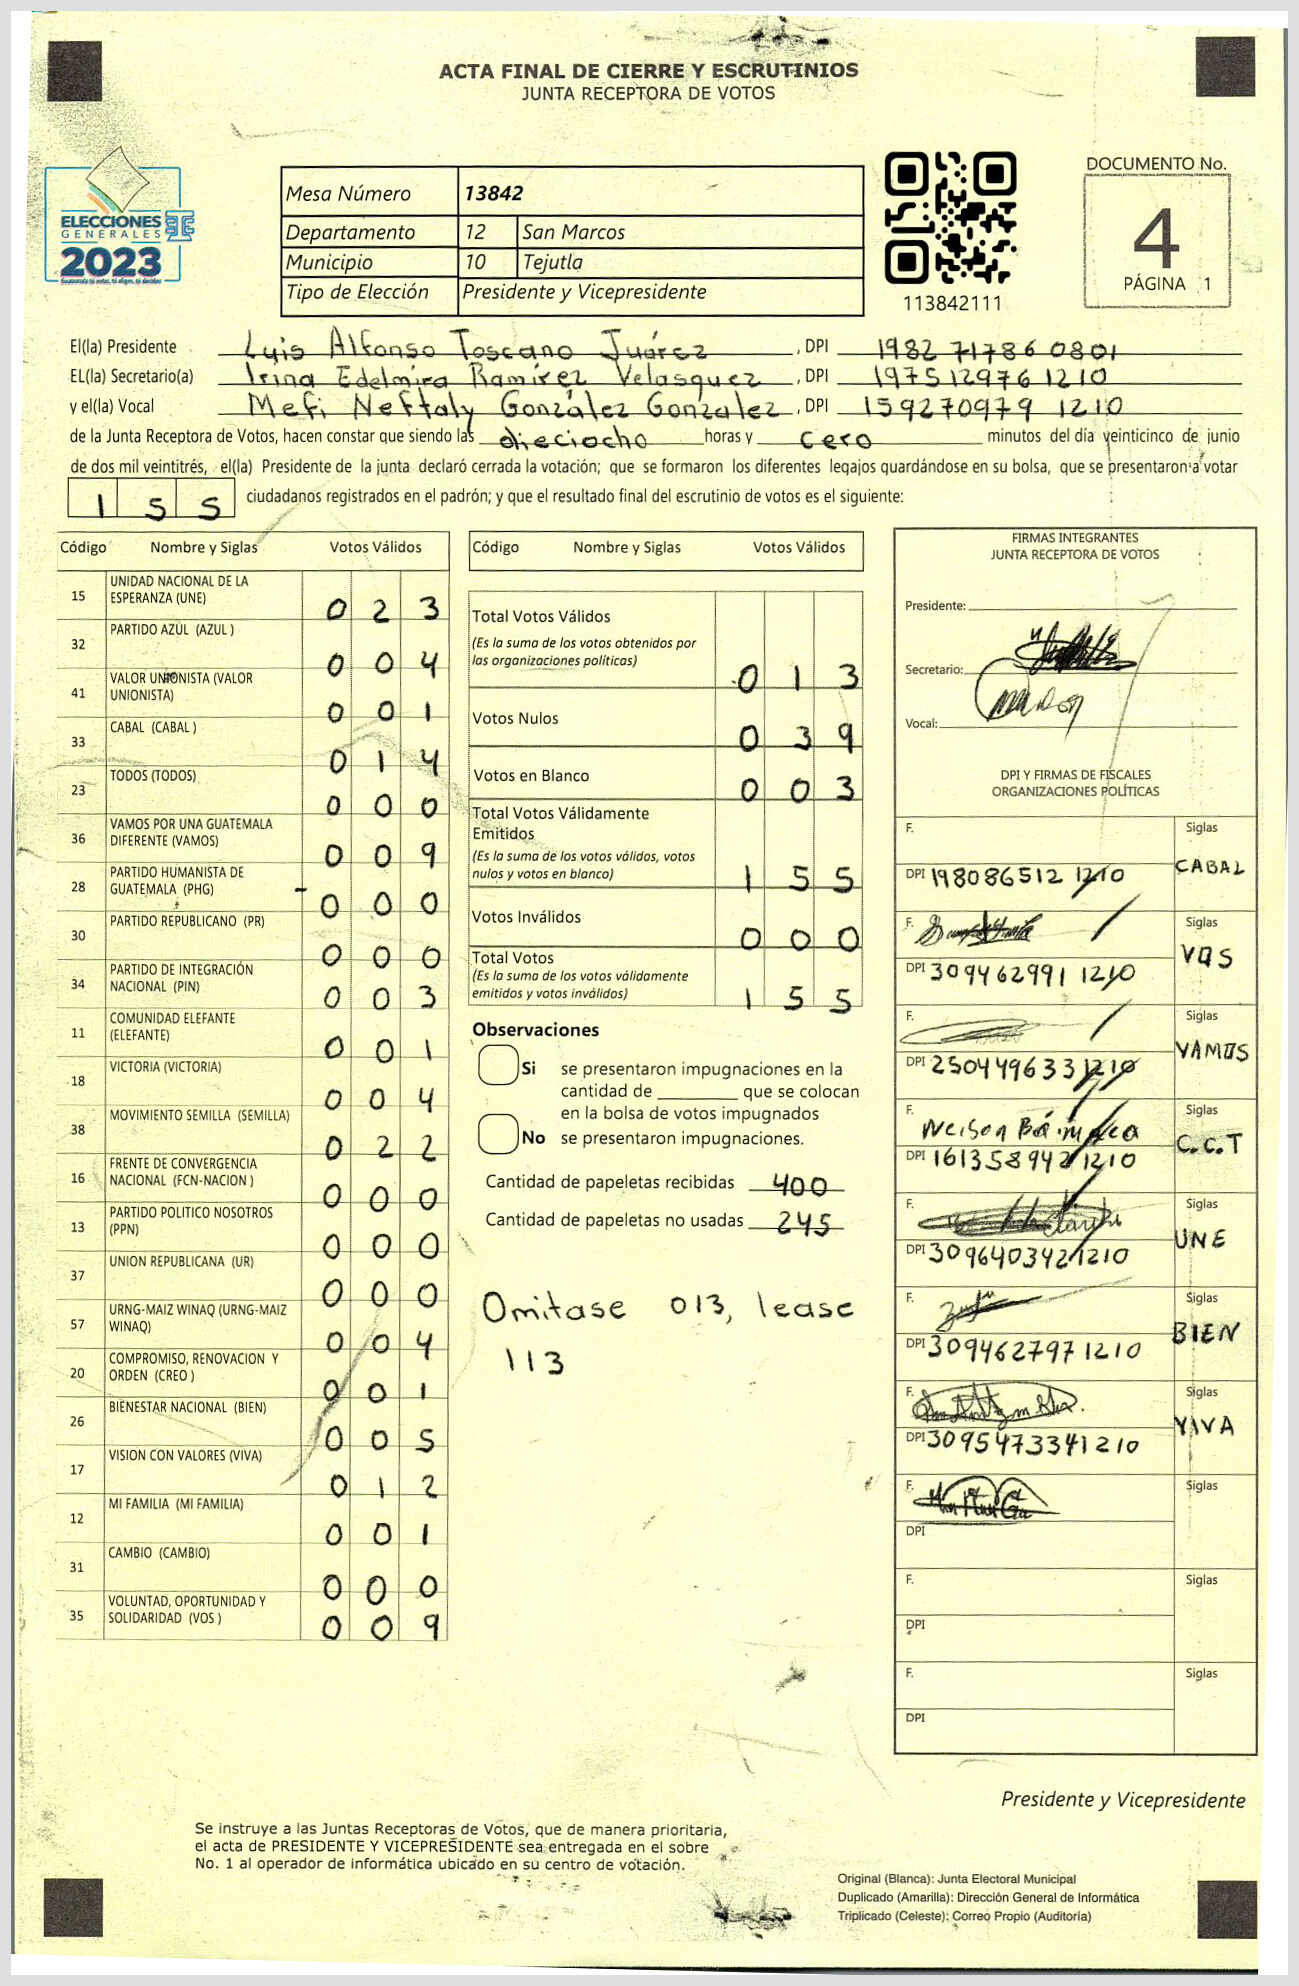 ACTA FINAL DE CIERRE Y ESCRUTINIOS
JUNTA RECEPTORA DE VOTOS
ELECCIONES
GENERALES
2023
Mesa Número 13842
Departamento 12 San Marcos
Municipio 10 Tejutla
Tipo de Elección Presidente y Vicepresidente
113842111
DOCUMENTO No.
4
PÁGINA 1
El(la) Presidente Luis Alfonso Toscano Juárez, DPI 1982 71786 0801
EL(la) Secretario(a) Irina Edelmira Ramírez Velasquez, DPI 197512976 1210
y el(la) Vocal Mefi Neftaly González González, DPI 159270979 1210
de la Junta Receptora de Votos, hacen constar que siendo las dieciocho horas y cero minutos del día veinticinco de junio
de dos mil veintitrés, el(la) Presidente de la junta declaró cerrada la votación; que se formaron los diferentes legajos guardándose en su bolsa, que se presentaron a votar
155 ciudadanos registrados en el padrón; y que el resultado final del escrutinio de votos es el siguiente:
Código Nombre y Siglas Votos Válidos
15 UNIDAD NACIONAL DE LA ESPERANZA (UNE) 0 2 3
32 PARTIDO AZUL (AZUL ) 0 0 4
41 VALOR UNIONISTA (VALOR UNIONISTA) 0 0 1
33 CABAL (CABAL ) 0 1 4
23 TODOS (TODOS) 0 0 0
36 VAMOS POR UNA GUATEMALA DIFERENTE (VAMOS) 0 0 9
28 PARTIDO HUMANISTA DE GUATEMALA (PHG) 0 0 0
30 PARTIDO REPUBLICANO (PR) 0 0 0
34 PARTIDO DE INTEGRACIÓN NACIONAL (PIN) 0 0 3
11 COMUNIDAD ELEFANTE (ELEFANTE) 0 0 1
18 VICTORIA (VICTORIA) 0 0 4
38 MOVIMIENTO SEMILLA (SEMILLA) 0 2 2
16 FRENTE DE CONVERGENCIA NACIONAL (FCN-NACION ) 0 0 0
13 PARTIDO POLITICO NOSOTROS (PPN) 0 0 0
37 UNION REPUBLICANA (UR) 0 0 0
57 URNG-MAIZ WINAQ (URNG-MAIZ WINAQ) 0 0 4
20 COMPROMISO, RENOVACION Y ORDEN (CREO ) 0 0 1
26 BIENESTAR NACIONAL (BIEN) 0 0 5
17 VISION CON VALORES (VIVA) 0 1 2
12 MI FAMILIA (MI FAMILIA) 0 0 1
31 CAMBIO (CAMBIO) 0 0 0
35 VOLUNTAD, OPORTUNIDAD Y SOLIDARIDAD (VOS ) 0 0 9
Código Nombre y Siglas Votos Válidos
Total Votos Válidos
(Es la suma de los votos obtenidos por
las organizaciones políticas) 0 1 3
Votos Nulos 0 3 9
Votos en Blanco 0 0 3
Total Votos Válidamente
Emitidos
(Es la suma de los votos válidos, votos
nulos y votos en blanco) 1 5 5
Votos Inválidos 0 0 0
Total Votos
(Es la suma de los votos válidamente
emitidos y votos inválidos) 1 5 5
Observaciones
Si se presentaron impugnaciones en la
cantidad de ________ que se colocan
en la bolsa de votos impugnados
No se presentaron impugnaciones.
Cantidad de papeletas recibidas 400
Cantidad de papeletas no usadas 245
Omitase 013, lease
113
FIRMAS INTEGRANTES
JUNTA RECEPTORA DE VOTOS
Presidente:
Secretario:
Vocal:
DPI Y FIRMAS DE FISCALES
ORGANIZACIONES POLÍTICAS
F. Siglas
DPI 198086512 1210 CABAL
F. Siglas
DPI 309462991 1210 VOS
F. Siglas
DPI 250449633 1210 VAMOS
F. Nelson Bámaca Siglas
DPI 161358942 1210 C.C.T
F. Siglas
DPI 309640342 1210 UNE
F. Siglas
DPI 309462797 1210 BIEN
F. Siglas
DPI 309547334 1210 VIVA
F. Siglas
DPI
F. Siglas
DPI
F. Siglas
DPI
Presidente y Vicepresidente
Se instruye a las Juntas Receptoras de Votos, que de manera prioritaria,
el acta de PRESIDENTE Y VICEPRESIDENTE sea entregada en el sobre
No. 1 al operador de informática ubicado en su centro de votación.
Original (Blanca): Junta Electoral Municipal
Duplicado (Amarilla): Dirección General de Informática
Triplicado (Celeste): Correo Propio (Auditoría)